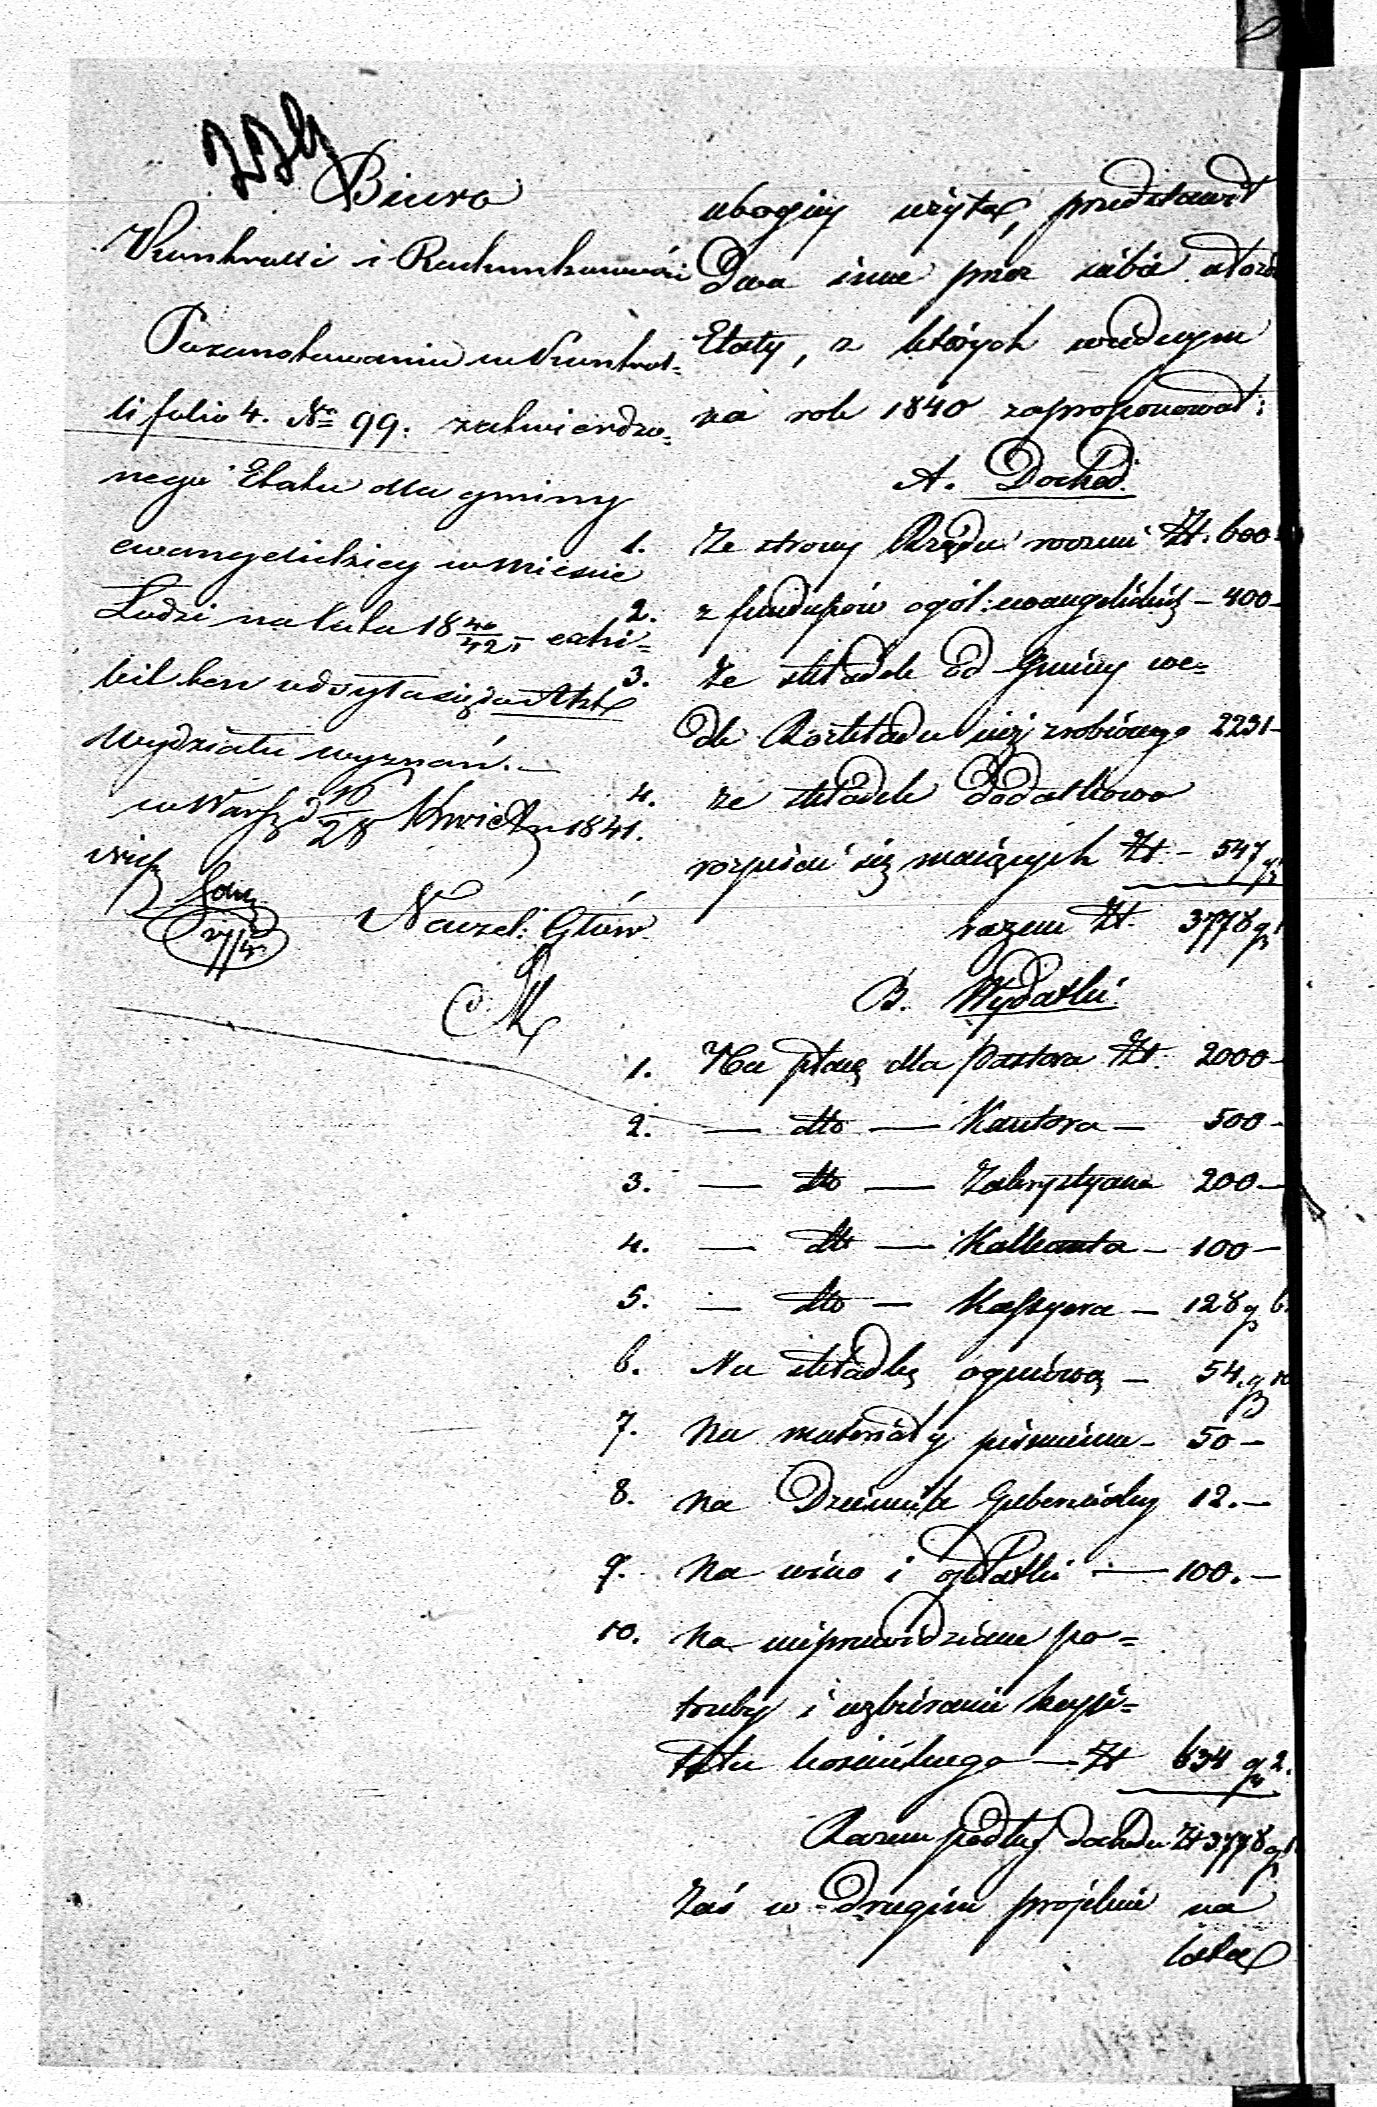 Biuro
Kontrolli i Rachunkowości
Pozanotowaniu w Kontrol=
li folio 4. No 99. zatwierdzo=
nego Etatu dla gminy
ewangelickiey w mieście
Łodzi na lata 18 40/42, exhi=
bit ten odsyła się do Akt
Wydziału wyznań.—
w Warsz d 16/28 Kwiet 1841.
Naczel: Głów
ubogiey użyta, przedstawił
Dwa inne przez siebie ułożo
Etaty, z których w jednym
na rok 1840 zaproponował:
A. Dochód.
1. Ze strony Rządu rocznie Zł. 600
2. z funduszów ogól: ewangelickich – 400 –
3. Ze składek od Gminy we=
dle Rozkładu już zrobionego 2231 –
4. ze składek dodatkowo
rozpisać się maiących Zł. – 547 gr
razem Zł. 3778 gr
B. Wydatki
1. Na płacę dla Pastora Zł. 2000 –
2. — dto — Kantora — 500 –
3. — dto — Zakrystyana 200 —
4. — dto — Kalkanta – 100 –
5. — dto — Kassyera — 128 gr 6.
6. Na składkę ogniową — 54. gr 10
7. Na materiały piśmienne – 50 –
8. na Dziennik Gubernialny 12. –
9. Na wino i opłatki — 100. –
10. Na nieprzewidziane po=
trzeby i uzbieranie kapi=
tału kościelnego — Zł 634 gr 2.
Razem podług dochodu Zł 3778 gr
Zaś w drugim projekcie na
lata